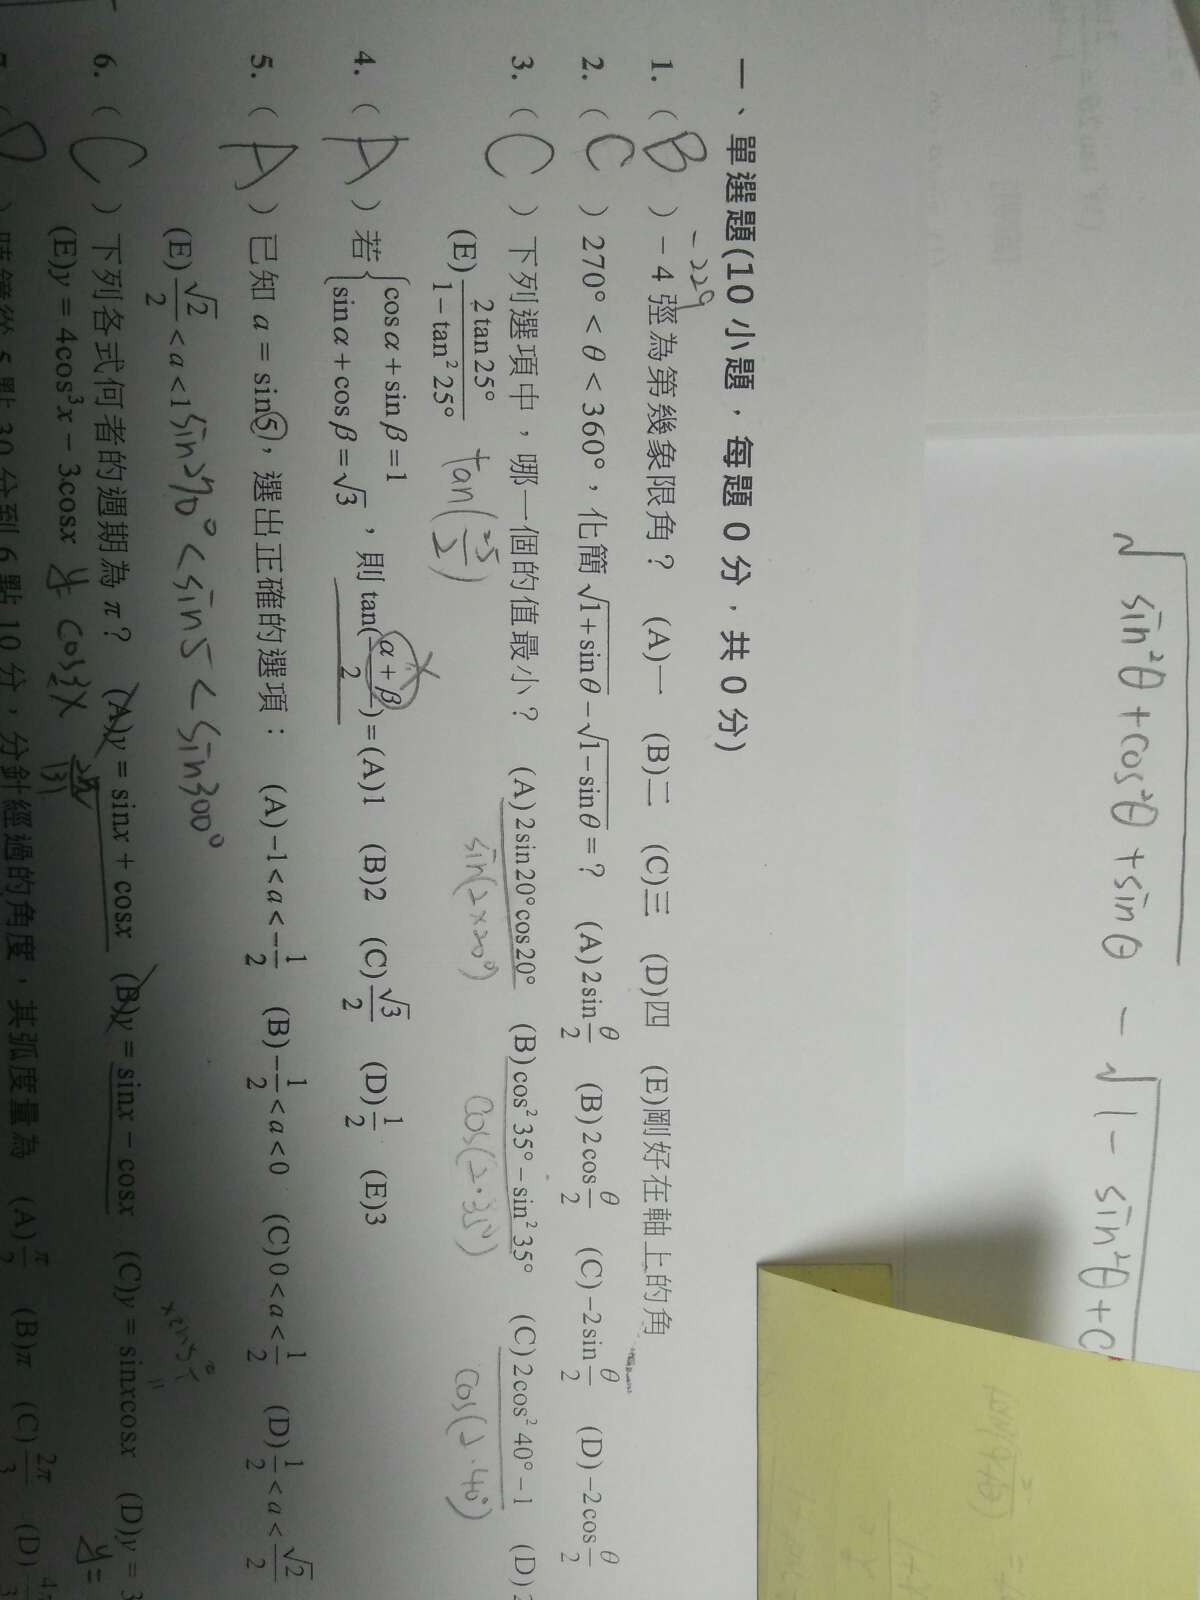 √sin²θ+cos²θ+sinθ - √1-sin²θ+c
一、單選題(10 小題，每題 0 分，共 0 分)
-229
1. ( B ) -4 弳為第幾象限角？ (A)一 (B)二 (C)三 (D)四 (E)剛好在軸上的角
2. ( C ) 270° < θ < 360°，化簡 √1+sinθ - √1-sinθ = ？ (A)2sin θ/2 (B)2cos θ/2 (C)-2sin θ/2 (D)-2cos θ/2
3. ( C ) 下列選項中，哪一個的值最小？ (A)2sin20°cos20° (B)cos²35°-sin²35° (C)2cos²40°-1 (D)
sin(2×20°) cos(2·35°) cos(2·40°)
(E) 2tan25°/1-tan²25° tan(25/2)
4. ( A ) 若 { cosα+sinβ=1
sinα+cosβ=√3 ，則 tan(α+β/2)= (A)1 (B)2 (C)√3/2 (D)1/2 (E)3
5. ( A ) 已知 a = sin5，選出正確的選項： (A)-1<a<-1/2 (B)-1/2<a<0 (C)0<a<1/2 (D)1/2<a<√2/2
(E)√2/2<a<1 sin270°<sin5<sin300°
6. ( C ) 下列各式何者的週期為 π？ (A)y = sinx + cosx (B)y = sinx - cosx (C)y = sinxcosx (D)y = 3
(E)y = 4cos³x - 3cosx y= cos3x 2π/|3| y=
7. ( D ) 時鐘從 5 點 30 分到 6 點 10 分，分針經過的角度，其弧度量為 (A)π/2 (B)π (C)2π/3 (D)4π/3